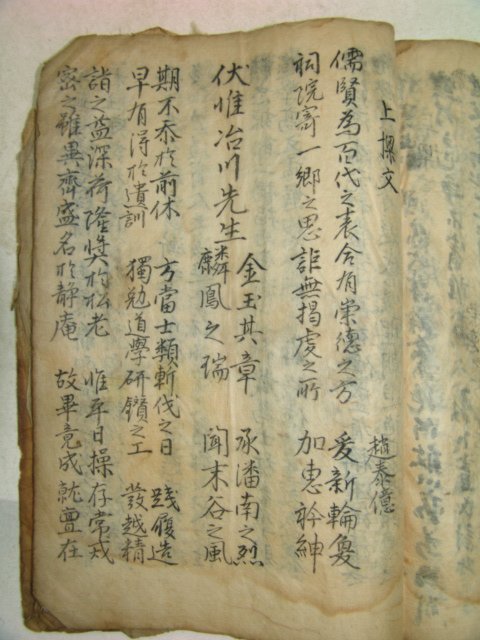 上樑文
趙泰億
儒賢為百代之表合有崇德之方 爰新輪奐
祠院寄一鄕之思詎無揭虔之所 加惠衿紳
伏惟冶川先生 金玉其章 承潘南之烈
麟鳳之瑞 聞末谷之風
期不忝於前休 方當士類斬伐之日 踐履造
早有得於遺訓 獨勉道學硏鑽之工 發越精
詣之益深荷隆奬於松老 惟平日操存常戒
密之雖異齊盛名於静庵 故畢竟成就豊在